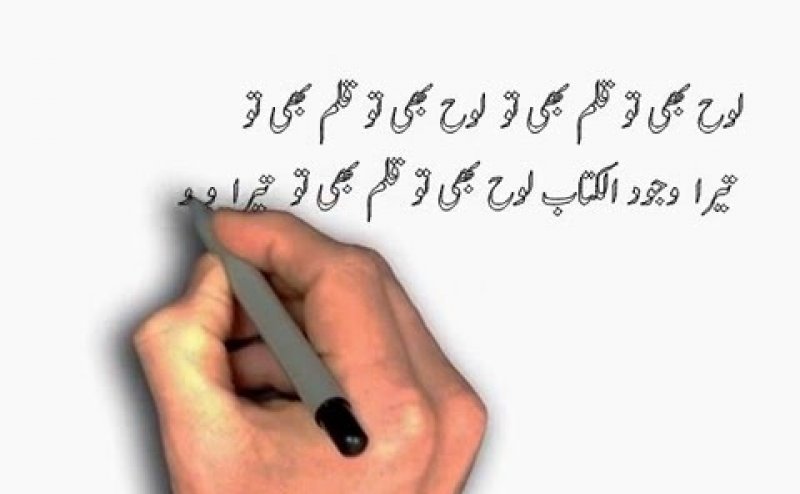 لوح بھی تو قلم بھی تو لوح بھی تو قلم بھی تو
تیرا وجود الکتاب لوح بھی تو قلم بھی تو تیرا و